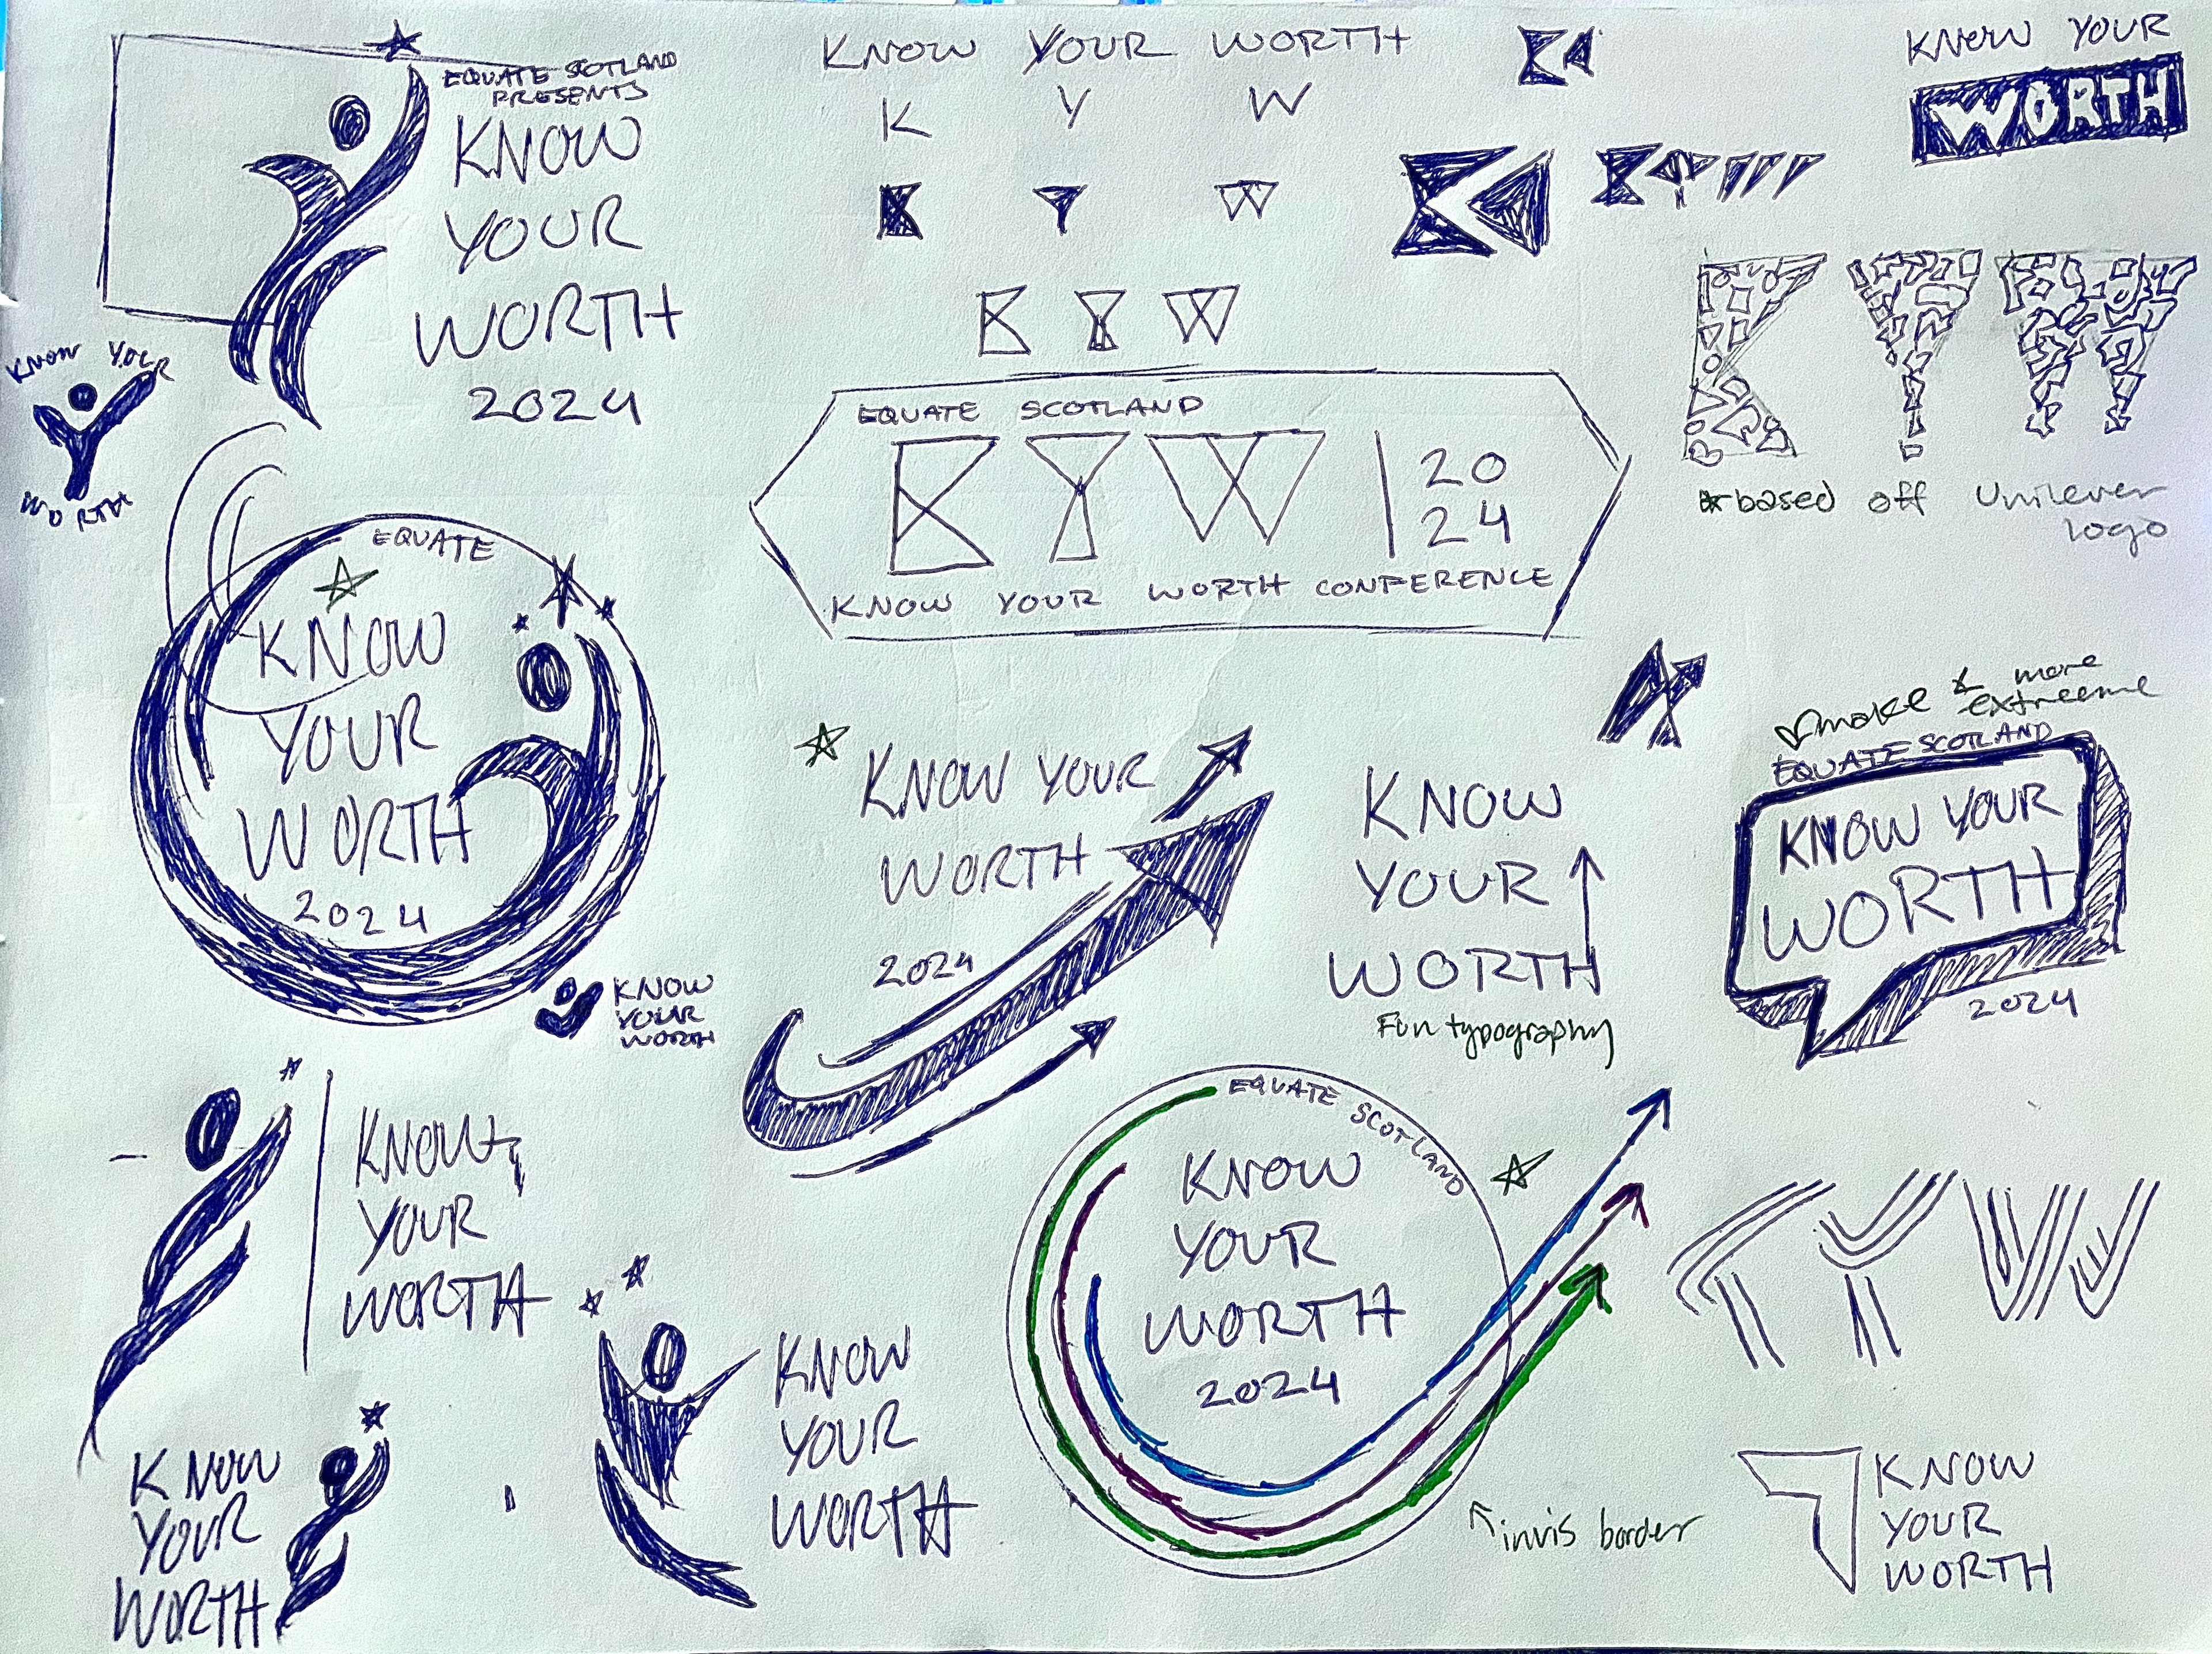 EQUATE SCOTLAND
PRESENTS
KNOW
YOUR
WORTH
2024
KNOW YOUR WORTH
K Y W
K Y W
K Y W
KNOW YOUR
WORTH
K Y W
*based off Unilever
logo
KNOW YOUR
WORTH
EQUATE SCOTLAND
KYW | 20
24
KNOW YOUR WORTH CONFERENCE
EQUATE
KNOW
YOUR
WORTH
2024
KNOW
YOUR
WORTH
KNOW YOUR
WORTH
2024
KNOW
YOUR
WORTH
Fun typography
make more
extreeme
EQUATE SCOTLAND
KNOW YOUR
WORTH
2024
KNOW
YOUR
WORTH
KNOW
YOUR
WORTH
KNOW
YOUR
WORTH
EQUATE SCOTLAND
KNOW
YOUR
WORTH
2024
invis border
KYW
KNOW
YOUR
WORTH